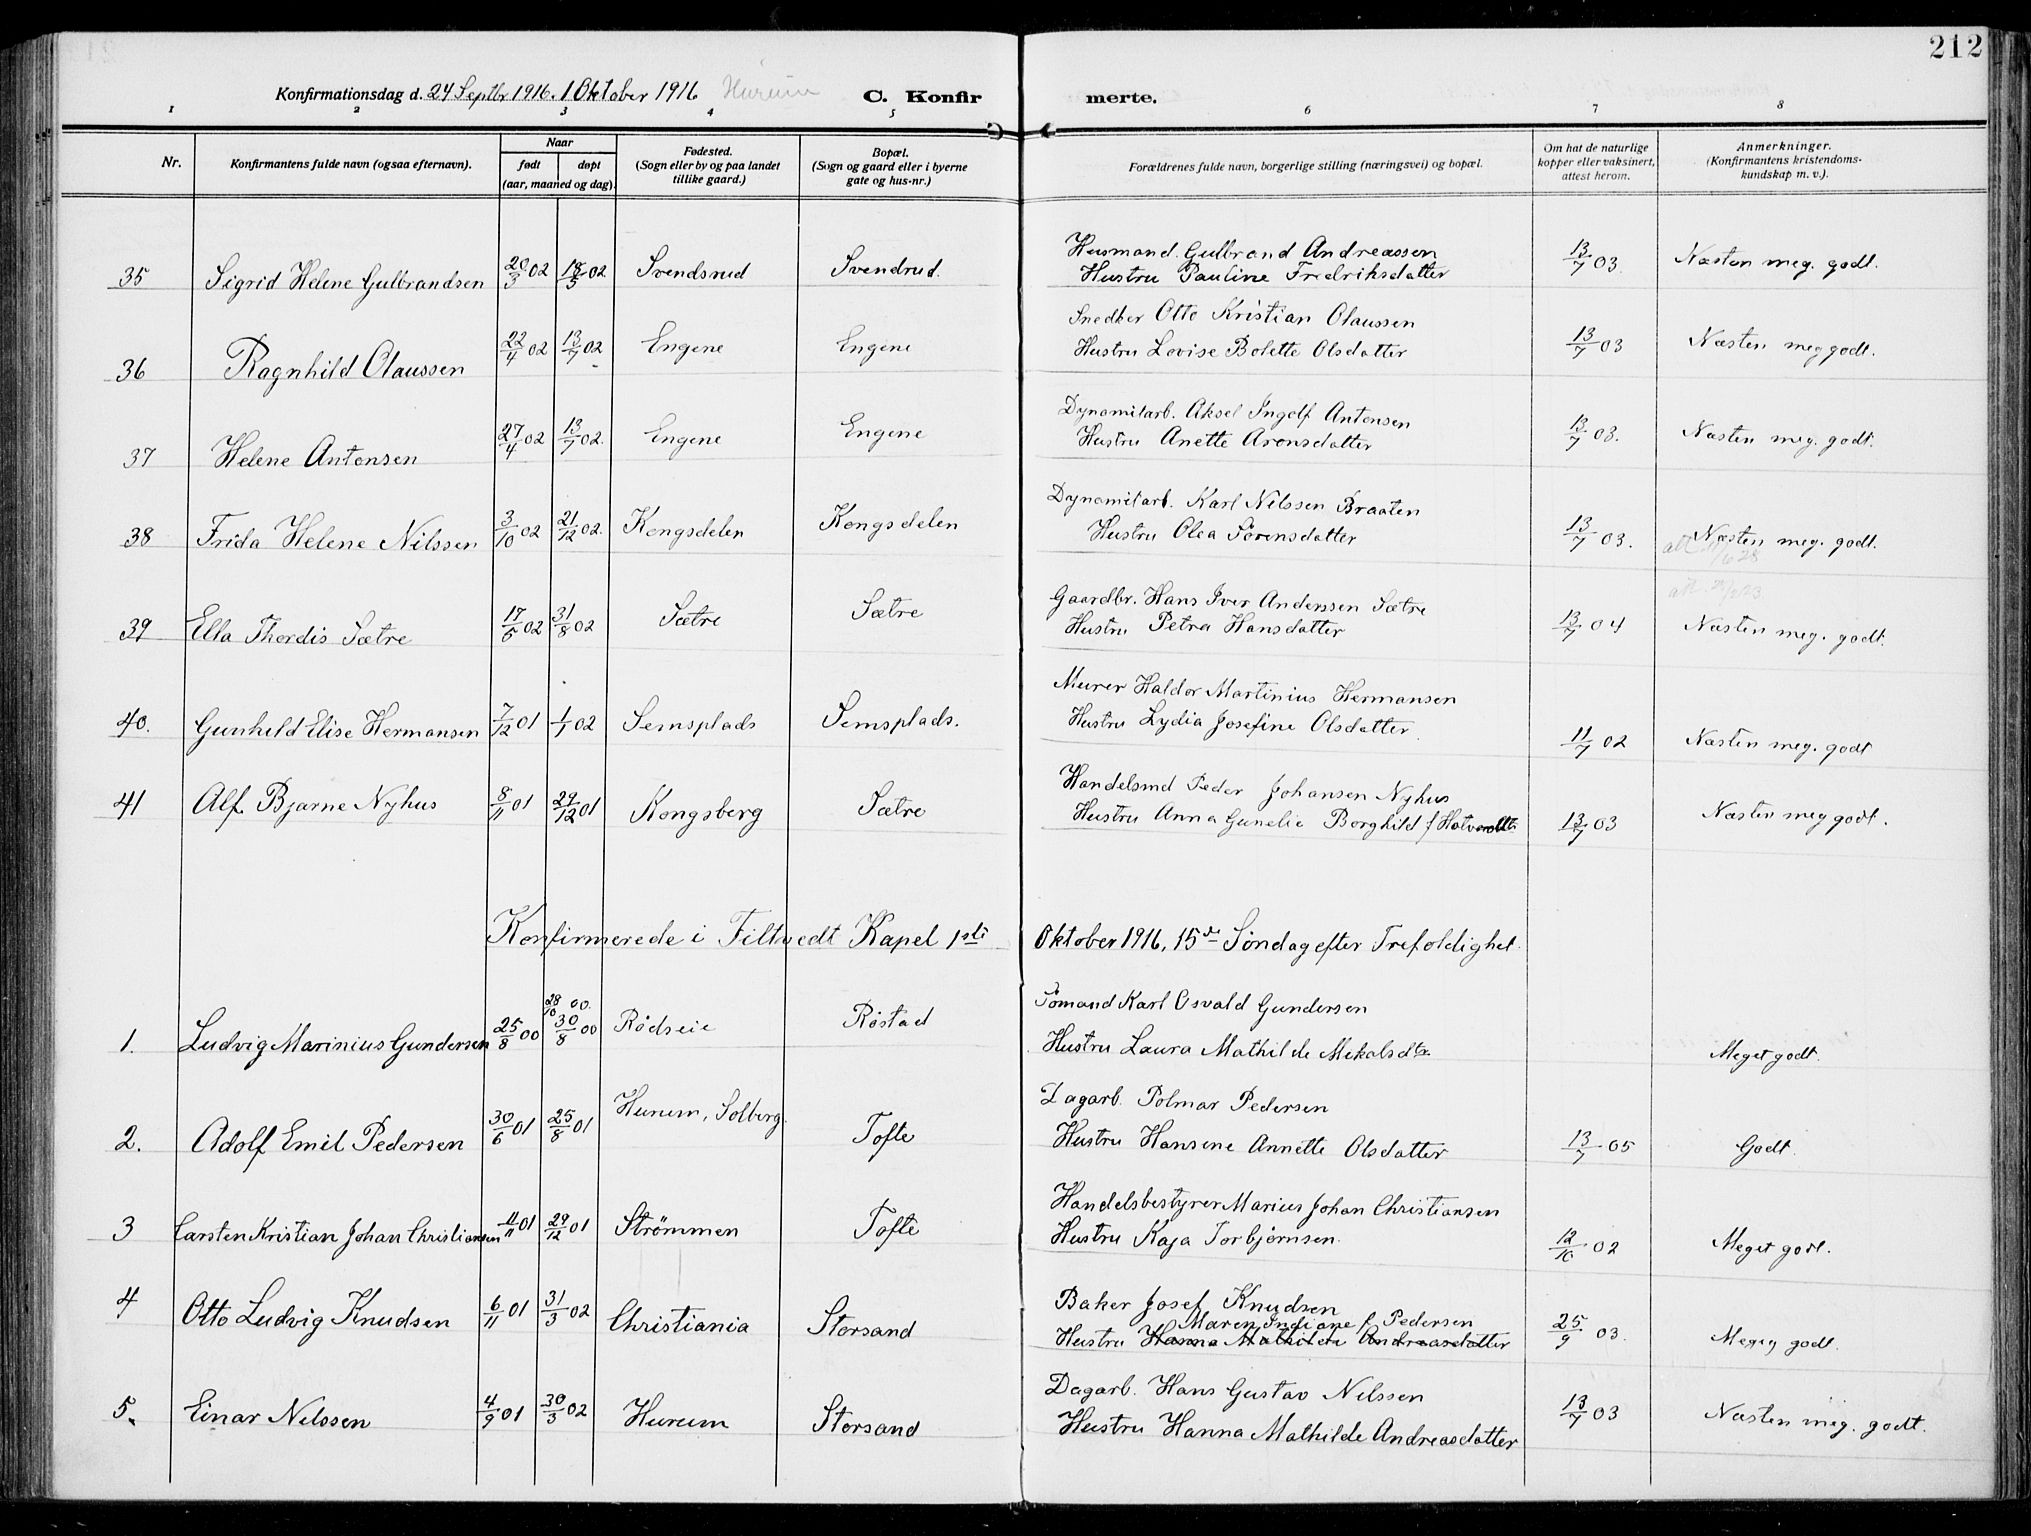 212
Konfirmationsdag d. 24 Septbr 1916. 1 Oktober 1916 Hurum C. Konfirmerte.
1 2 3 4 5 6 7 8
Nr. Konfirmantens fulde navn (ogsaa efternavn). Naar født døpt (aar, maaned og dag). Fødested. (Sogn eller by og paa landet tillike gaard.) Bopæl. (Sogn og gaard eller i byerne gate og hus-nr.) Forældrenes fulde navn, borgerlige stilling (næringsvei) og bopæl. Om hat de naturlige kopper eller vaksinert, attest herom. Anmerkninger. (Konfirmantens kristendoms-kundskap m. v.).
35 Sigrid Helene Gulbrandsen 20/3 02 18/5 02 Svendsrud Svendrud. Husmand. Gulbrand Andreassen
Hustru Pauline Fredriksdatter 13/7 03 Næsten meg. godt.
36 Ragnhild Olaussen 22/4 02 13/7 02 Engene Engene Snedker Otto Kristian Olaussen
Hustru Lovise Bolette Olsdatter 13/7 03 Næsten meg godt.
37 Helene Antonsen 27/4 02 13/7 02. Engene Engene Dynamitarb. Aksel Ingolf Antonsen
Hustru Anette Aronsdatter 13/7 03. Næsten meg. godt.
38 Frida Helene Nilssen 3/10 02 21/12 02. Kongsdelen Kongsdelen Dynamitarb. Karl Nilssen Braaten
Hustru Olea Sörensdatter 13/7 03. Næsten meg. godt.
39 Ella Thordis Sætre 17/5 02 31/8 02 Sætre Sætre Gaardbr. Hans Iver Anderssen Sætre
Hustru Petra Hansdatter 13/7 04 Næsten meg. godt.
40. Gunhild Elise Hermansen 7/12 01 1/1 02 Semsplads Semsplads. Murer Haldor Martinius Hermansen
Hustru Lydia Josefine Olsdatter. 11/7 02 Næsten meg. godt
41 Alf Bjarne Nyhus 8/11 01 29/12 01 Kongsberg Sætre Handelsmd Peder Johansen Nyhus
Hustru Anna Gunelie Borghild f 13/7 03 Næsten meg godt.
Konfirmerede i Filtvedt Kapel 1ste Oktober 1916, 15de Söndag efter Trefoldighet.
1. Ludvig Marinius Gundersen 25/8 00 28/10 00. 30/8 00 Rödseie Röstad Sömand Karl Osvald Gundersen
Hustru Laura Mathilde Mekalsdtr. Meget godt.
2. Adolf Emil Pedersen 30/6 01 25/8 01 Hurum, Solberg. Tofte Dagarb. Polmar Pedersen
Hustru Hansine Annette Olsdatter 13/7 05 Godt.
3 Carsten Kristian Johan Christiansen 4/11 01 29/12 01 Strømmen Tofte Handelsbestyrer Marius Johan Christiansen
Hustru Kaja Torbjørnsen. 12/10 02 Meget godt.
4 Otto Ludvig Knudsen 6/11 01 31/3 02 Christiania Storsand Baker Josef Knudsen
Maren Indiane f Pedersen
Hustru Hanna Mathilde Andreasdatter 25/9 03. Meget godt.
5. Einar Nilssen 4/9 01 30/3 02 Hurum Storsand Dagarb. Hans Gustav Nilssen
Hustru Hanna Mathilde Andreasdatter 13/7 03 Næsten meg. godt.